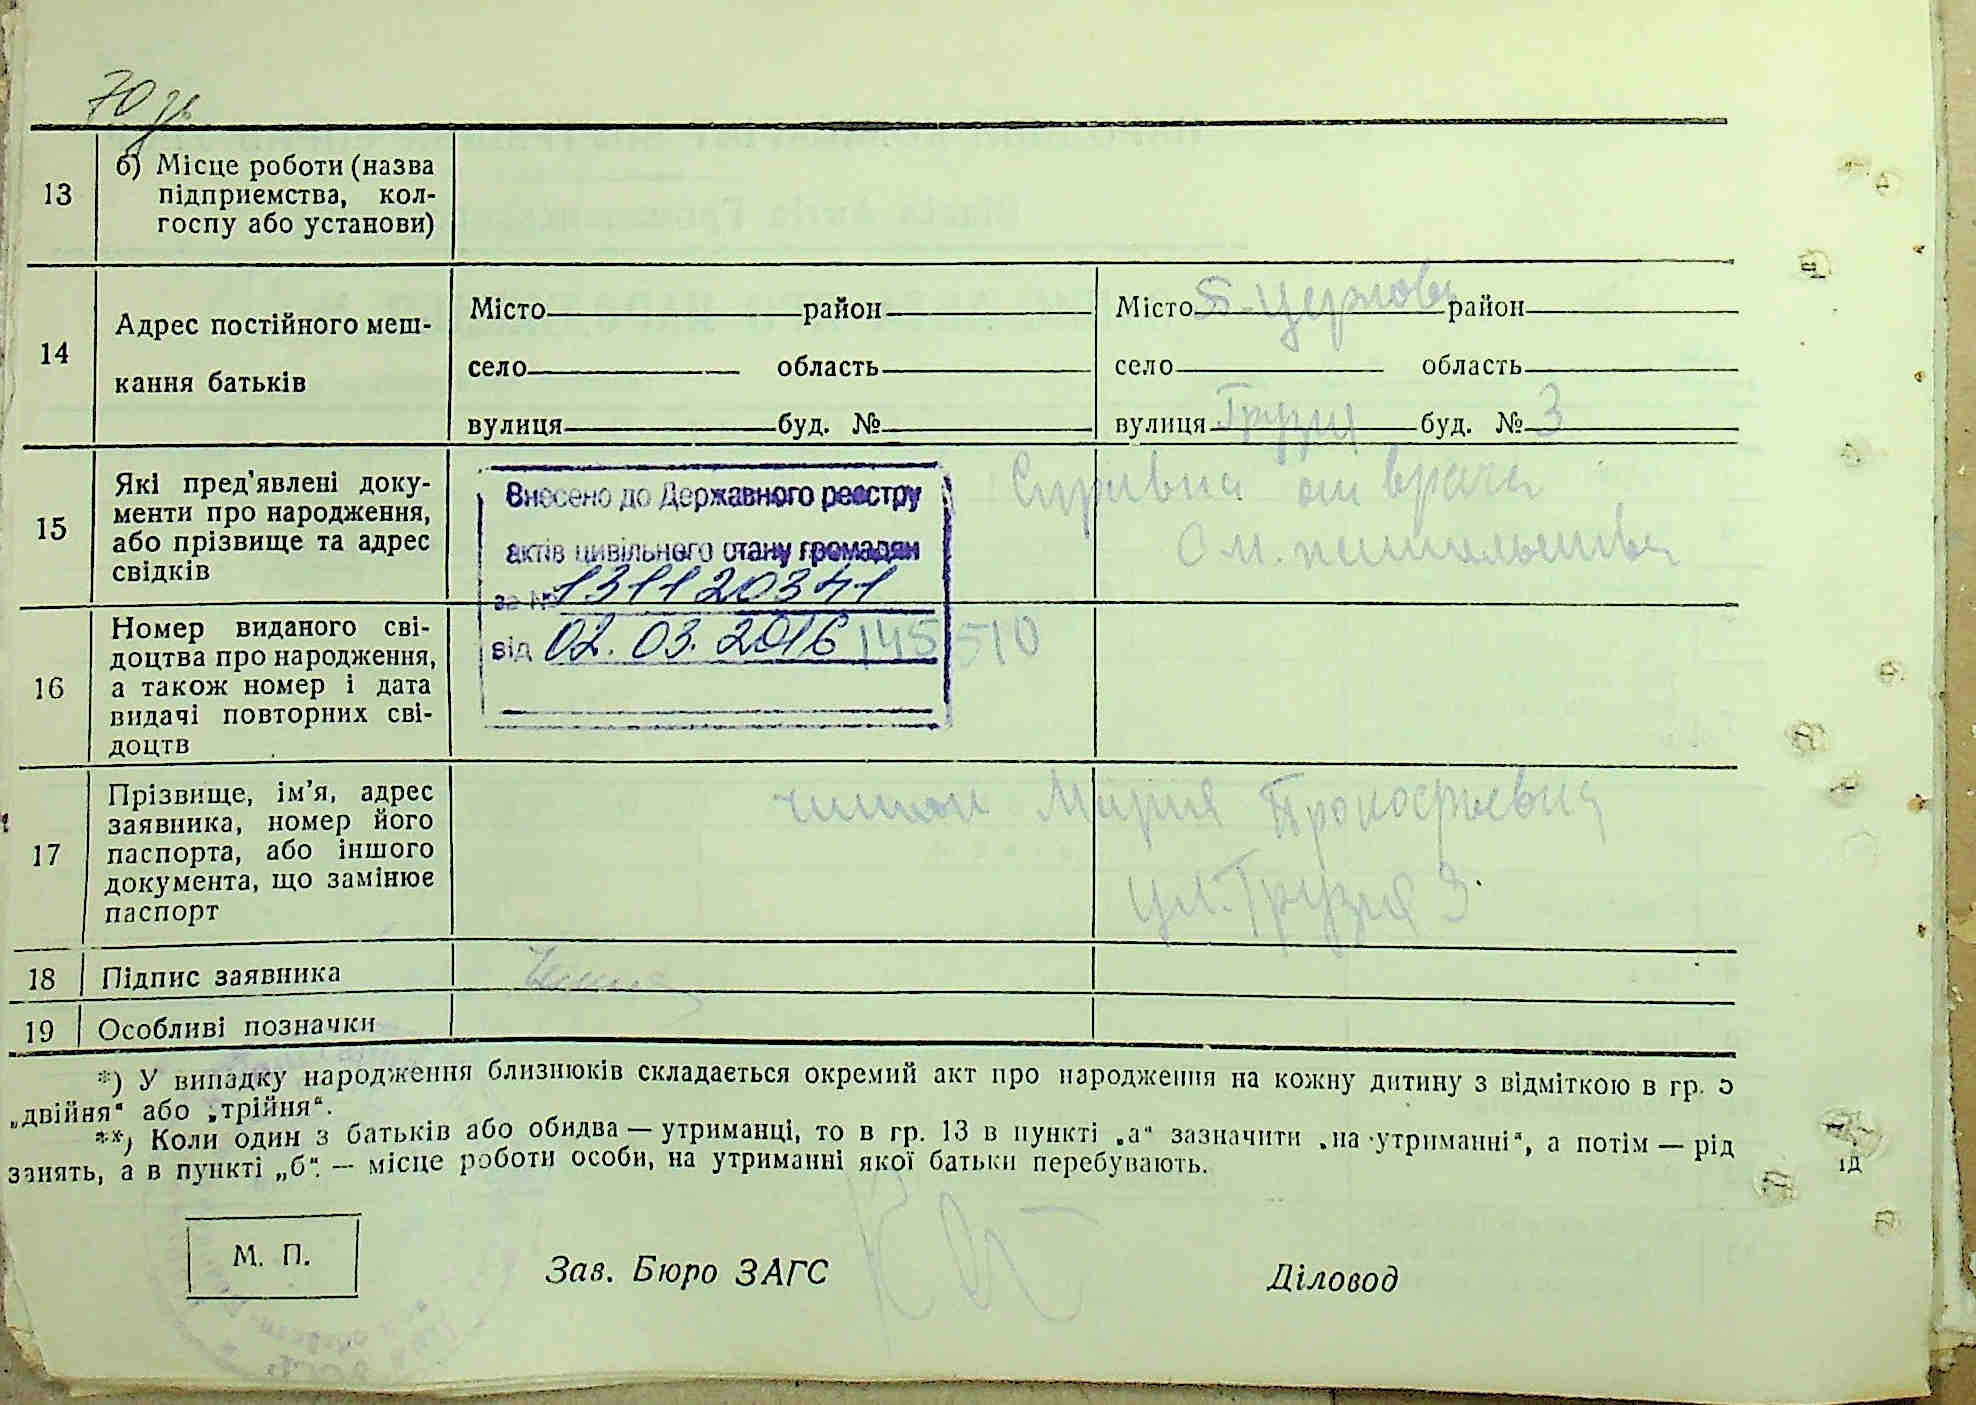 70 зв
13
б) Місце роботи (назва
підприємства, кол-
госпу або установи)
14
Адрес постійного меш-
кання батьків
Місто район
село область
вулиця буд. №
Місто Б-Церковь район
село область
вулиця Грузия буд. № 3
15
Які пред'явлені доку-
менти про народження,
або прізвище та адрес
свідків
Внесено до Державного реєстру
актів цивільного стану громадян
за № 131120341
від 02.03.2016
Справка от врача
16
Номер виданого сві-
доцтва про народження,
а також номер і дата
видачі повторних сві-
доцтв
145510
17
Прізвище, ім'я, адрес
заявника, номер його
паспорта, або іншого
документа, що замінює
паспорт
Мария Прокофьевна
ул. Грузия 3.
18
Підпис заявника
19
Особливі позначки
*) У випадку народження близнюків складається окремий акт про народження на кожну дитину з відміткою в гр. 5
„двійня“ або „трійня“.
**) Коли один з батьків або обидва — утриманці, то в гр. 13 в пункті „а“ зазначити „на утриманні“, а потім — рід
занять, а в пункті „б“ — місце роботи особи, на утриманні якої батьки перебувають.
М. П.
Зав. Бюро ЗАГС
Діловод